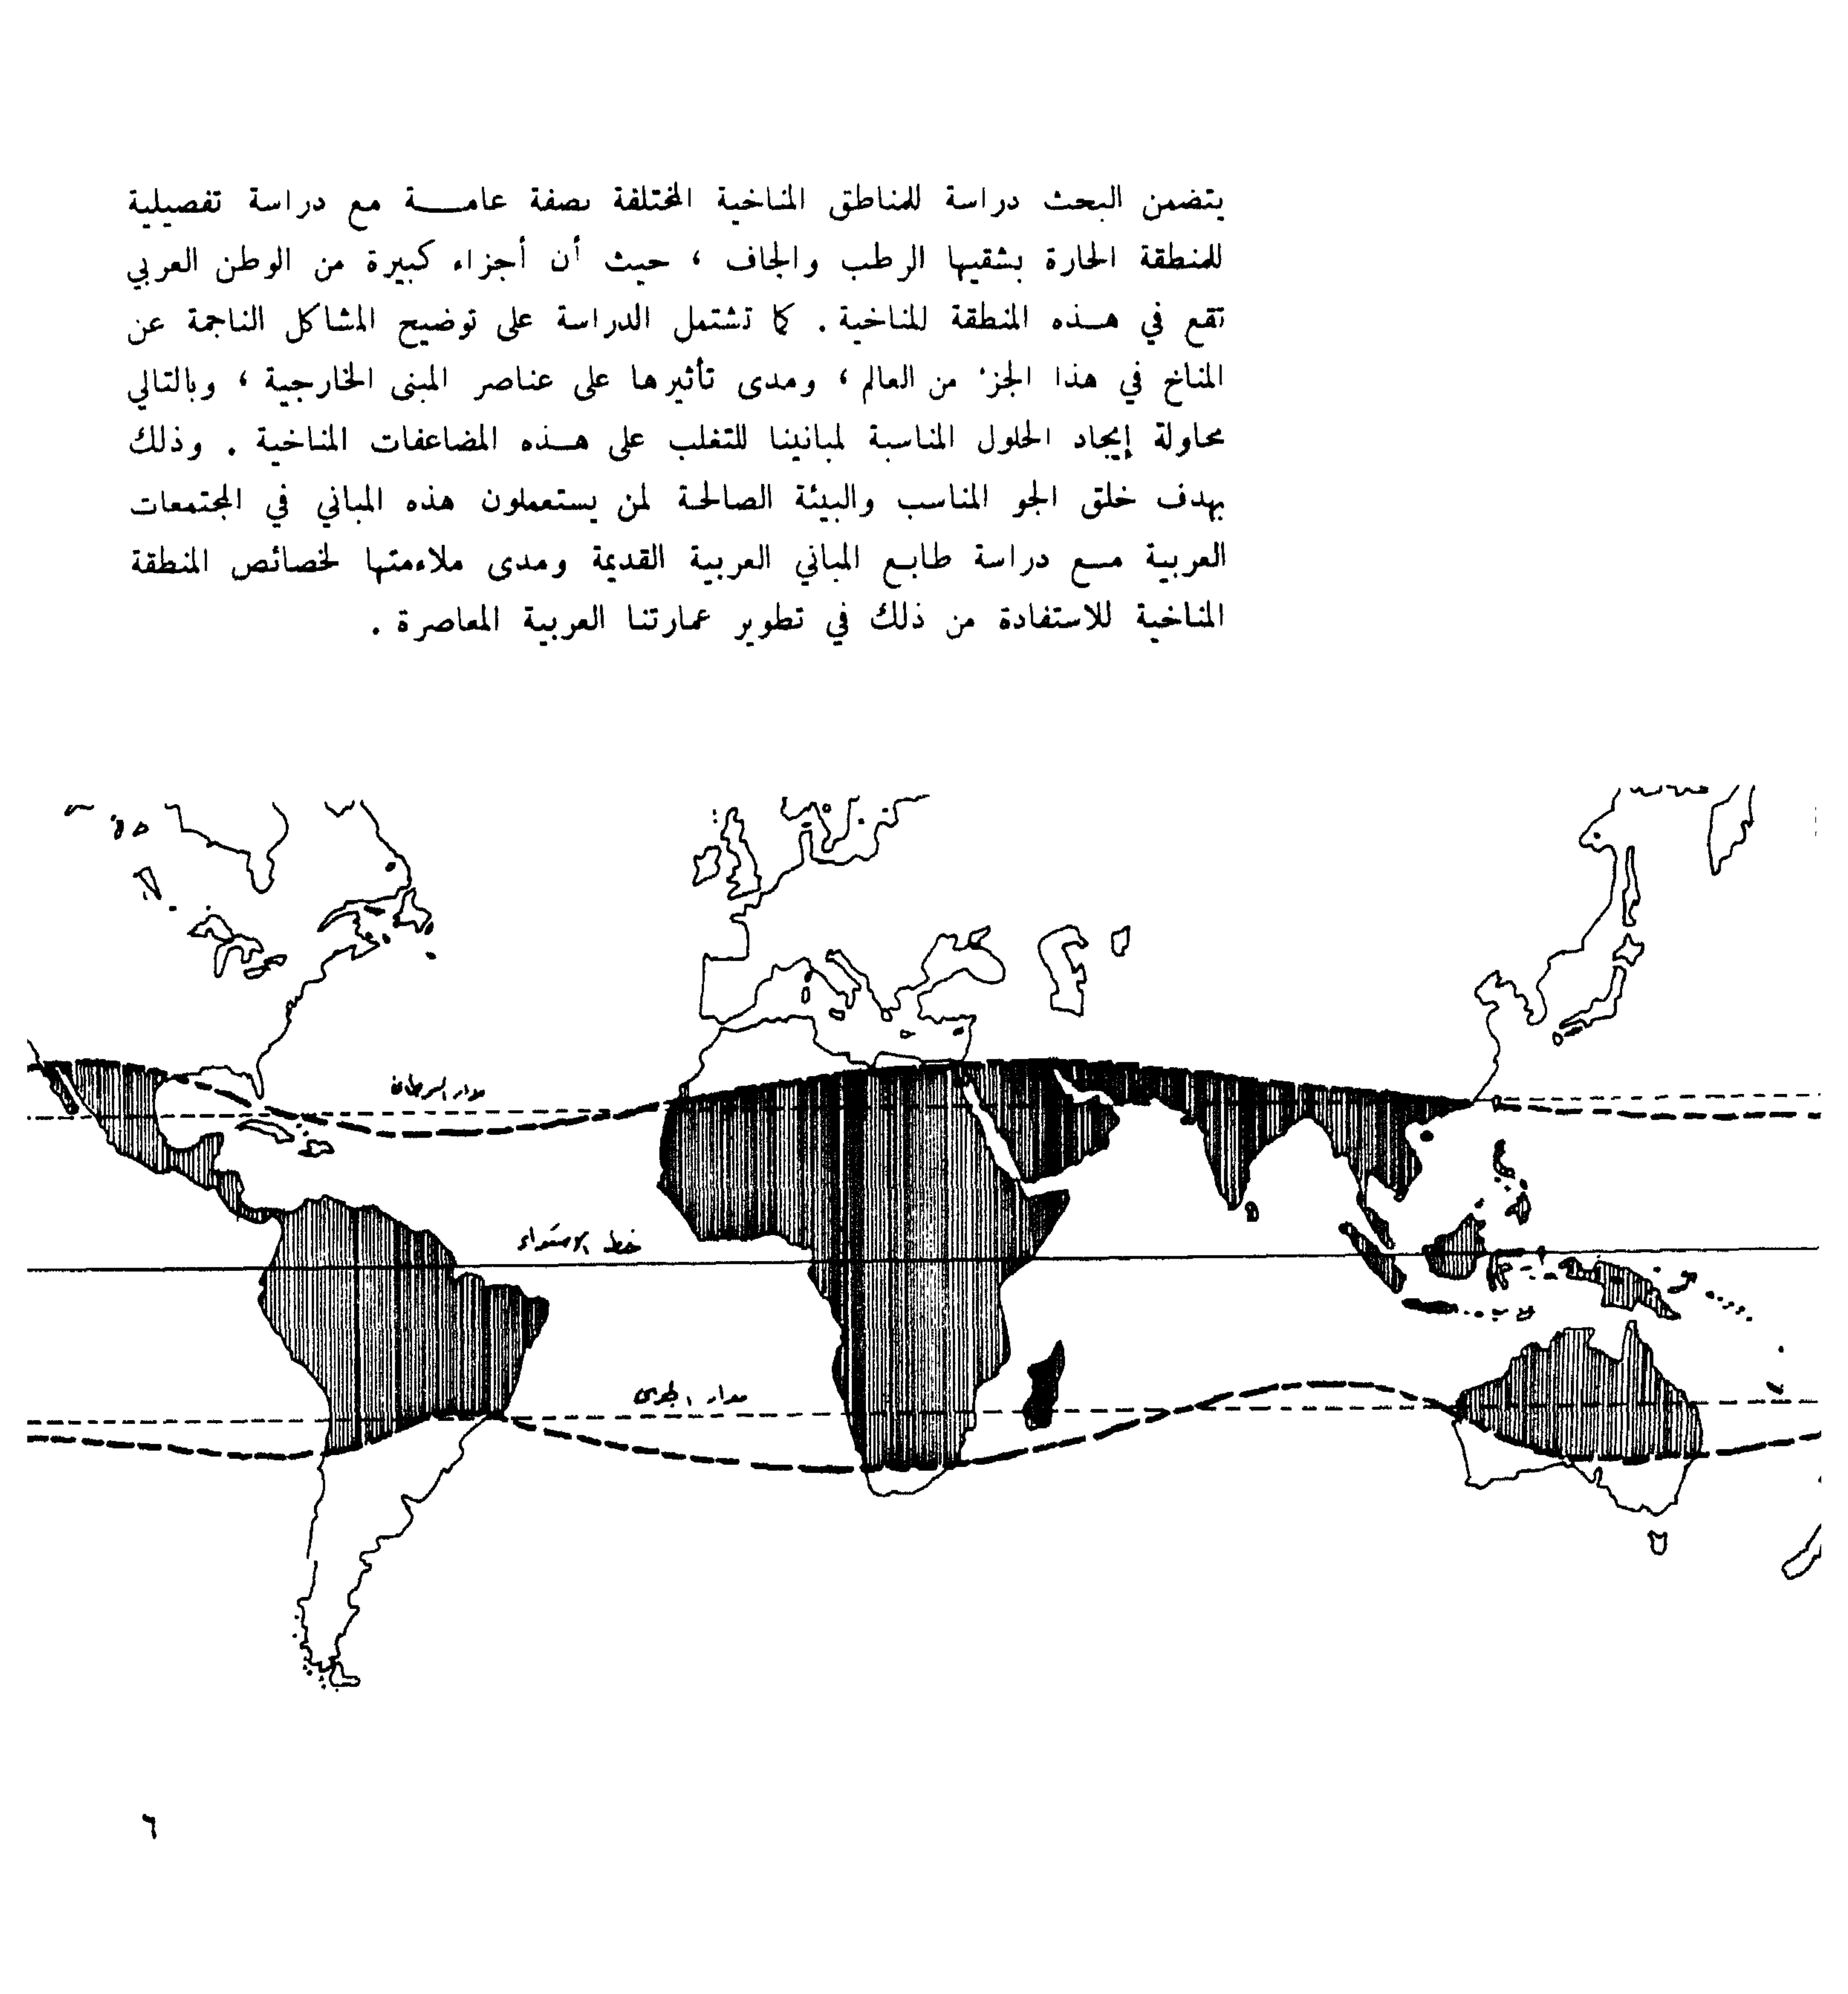 يتضمن البحث دراسة للمناطق المناخية المختلفة بصفة عامـــة مع دراسة تفصيلية
للمنطقة الحارة بشقيها الرطب والجاف ، حيث أن أجزاء كبيرة من الوطن العربي
تقع في هــذه المنطقة للمناخية . كما تشتمل الدراسة على توضيح المشاكل الناجمة عن
المناخ في هذا الجزء من العالم ، ومدى تأثيرها على عناصر المبنى الخارجية ، وبالتالي
محاولة إيجاد الحلول المناسبة لمبانينا للتغلب على هــذه المضاعفات المناخية . وذلك
بهدف خلق الجو المناسب والبيئة الصالحة لمن يستعملون هذه المباني في المجتمعات
العربية مــع دراسة طابــع المباني العربية القديمة ومدى ملاءمتها لخصائص المنطقة
المناخية للاستفادة من ذلك في تطوير عمارتنا العربية المعاصرة .
مدار السرطان
خط الاستواء
مدار الجدى
٦